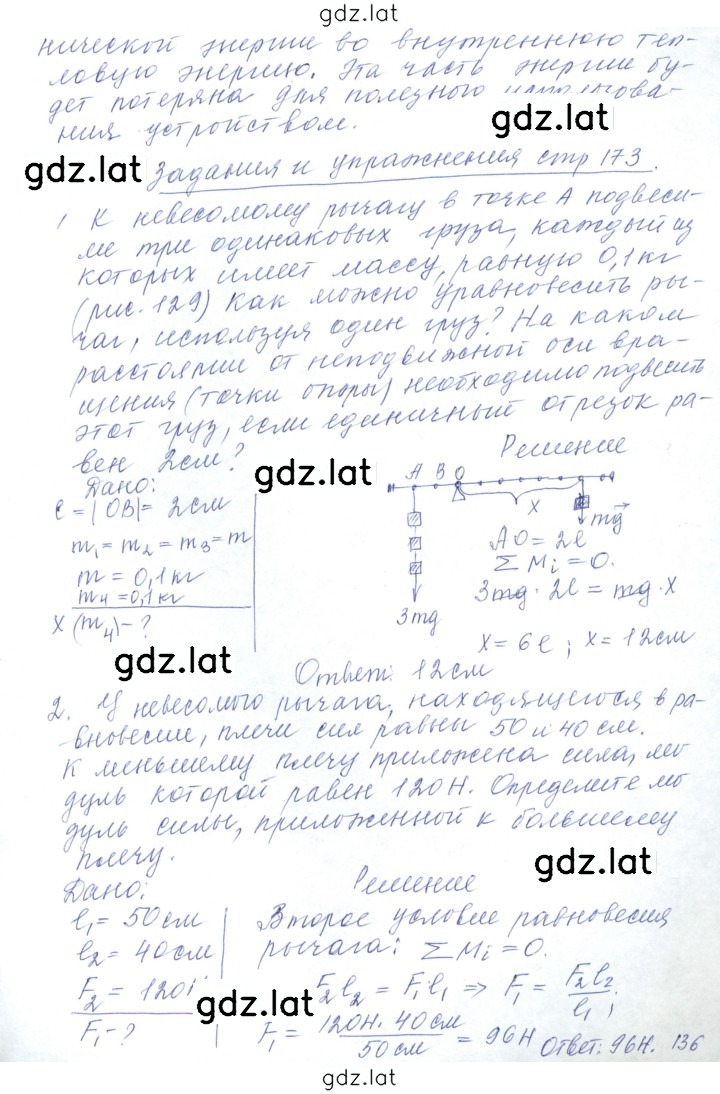 gdz.lat
нической энергие во внутреннюю теп-
ловую энергию. Эта часть энергие бу-
дет потеряна для полезного
ния устройством.
gdz.lat
gdz.lat
Задания и упражнения стр 173.
1 К невесомому рычагу в точке А подвеси-
ме три одинаковых груза, каждый из
которых имеет массу, равную 0,1кг
(рис. 129) Как можно уравновесить ры-
чаг, используя один груз? На каком
расстоянии от неподвижной оси вра-
щения (точки опоры) необходимо подвесить
этот груз, если единичный отрезок ра-
вен 2см?
Решение
Дано:
gdz.lat
A B O
ℓ = |OB| = 2см
x
mg
m₁ = m₂ = m₃ = m
AO = 2ℓ
m = 0,1кг
ΣMᵢ = 0.
m₄ = 0,1кг
3mg · 2ℓ = mg · x
x (m₄) - ?
3mg
x = 6ℓ ; x = 12см
gdz.lat
Ответ: 12см
2. У невесомого рычага, находящегося в ра-
вновесие, плечи сил равны 50 и 40 см.
К меньшему плечу приложена сила, мо
дуль которой равен 120Н. Определите мо
дуль силы, приложенной к большему
плечу.
gdz.lat
Дано:
Решение
ℓ₁ = 50 см
Второе условие равновесия
ℓ₂ = 40см
рычага: ΣMᵢ = 0.
F₂ = 120
gdz.lat
F₂ℓ₂ = F₁ℓ₁ ⇒ F₁ = F₂ℓ₂/ℓ₁ ;
F₁ - ?
F₁ = 120Н · 40см/50см = 96Н
Ответ: 96Н.
136
gdz.lat